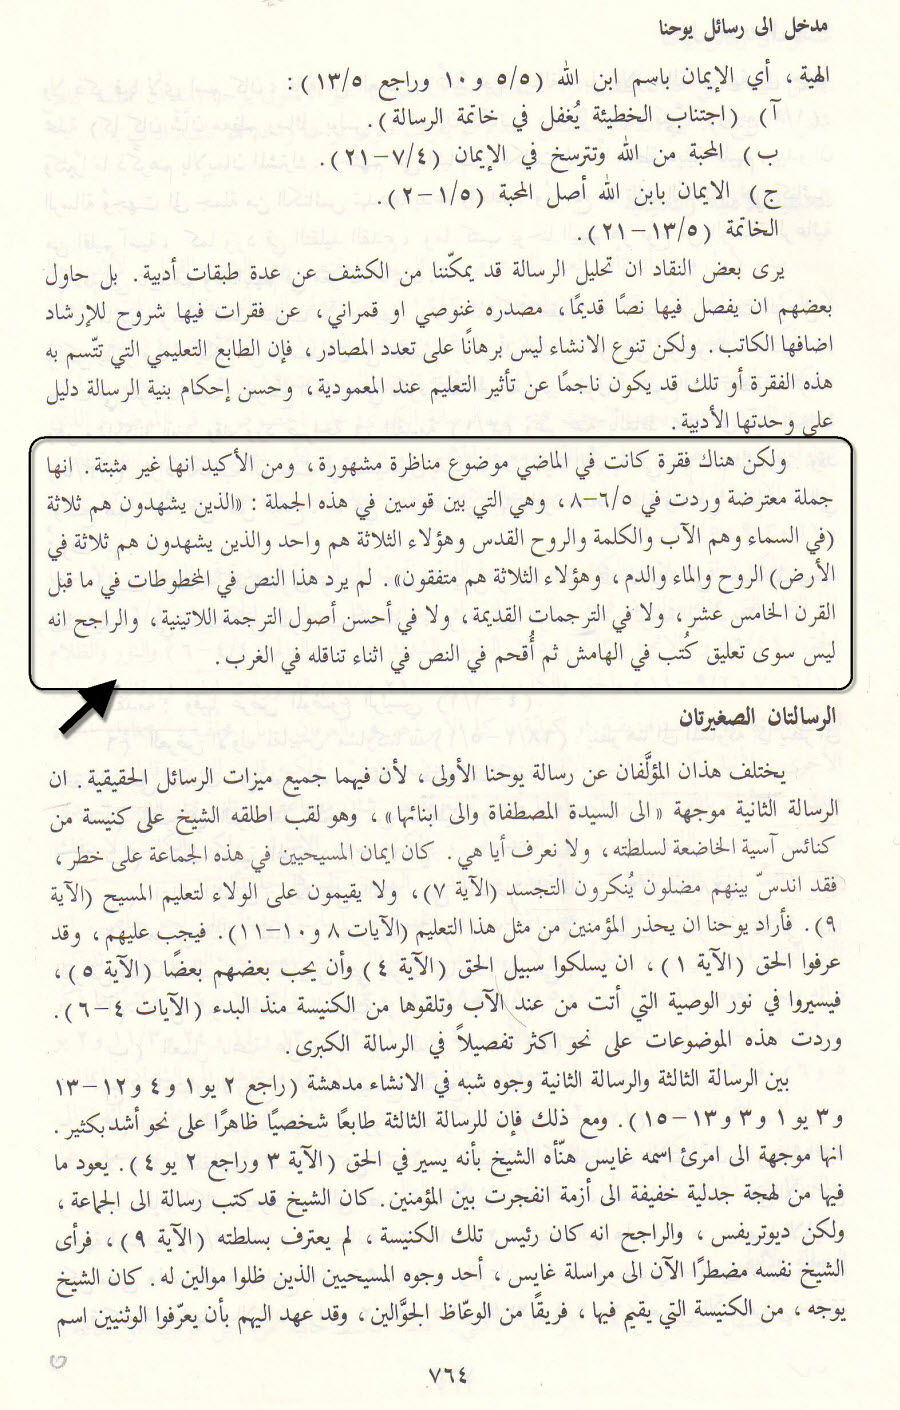 مدخل الى رسائل يوحنا
الهية ، أي الإيمان باسم ابن الله (٥/٥ و١٠ وراجع ١٣/٥) :
آ) (اجتناب الخطيئة يُغفل في خاتمة الرسالة).
ب) المحبة من الله وتترسخ في الإيمان (٧/٤–٢١).
ج) الايمان بابن الله أصل المحبة (١/٥–٢).
الخاتمة (١٣/٥–٢١).
يرى بعض النقاد ان تحليل الرسالة قد يمكّننا من الكشف عن عدة طبقات أدبية. بل حاول
بعضهم ان يفصل فيها نصًا قديمًا، مصدره غنوصي او قمراني، عن فقرات فيها شروح للإرشاد
اضافها الكاتب. ولكن تنوع الانشاء ليس برهانًا على تعدد المصادر، فإن الطابع التعليمي التي تتّسم به
هذه الفقرة أو تلك قد يكون ناجمًا عن تأثير التعليم عند المعمودية، وحسن إحكام بنية الرسالة دليل
على وحدتها الأدبية.
ولكن هناك فقرة كانت في الماضي موضوع مناظرة مشهورة، ومن الأكيد انها غير مثبتة. انها
جملة معترضة وردت في ٦/٥–٨، وهي التي بين قوسين في هذه الجملة : «الذين يشهدون هم ثلاثة
(في السماء وهم الآب والكلمة والروح القدس وهؤلاء الثلاثة هم واحد والذين يشهدون هم ثلاثة في
الأرض) الروح والماء والدم، وهؤلاء الثلاثة هم متفقون». لم يرد هذا النص في المخطوطات في ما قبل
القرن الخامس عشر، ولا في الترجمات القديمة، ولا في أحسن أصول الترجمة اللاتينية، والراجح انه
ليس سوى تعليق كُتب في الهامش ثم أُقحم في النص في اثناء تناقله في الغرب.
الرسالتان الصغيرتان
يختلف هذان المؤلَّفان عن رسالة يوحنا الأولى، لأن فيهما جميع ميزات الرسائل الحقيقية. ان
الرسالة الثانية موجهة «الى السيدة المصطفاة والى ابنائها»، وهو لقب اطلقه الشيخ على كنيسة من
كنائس آسية الخاضعة لسلطته، ولا نعرف أيا هي. كان ايمان المسيحيين في هذه الجماعة على خطر،
فقد اندسّ بينهم مضلون يُنكرون التجسد (الآية ٧)، ولا يقيمون على الولاء لتعليم المسيح (الآية
٩). فأراد يوحنا ان يحذر المؤمنين من مثل هذا التعليم (الآيات ٨ و١٠–١١). فيجب عليهم، وقد
عرفوا الحق (الآية ١)، ان يسلكوا سبيل الحق (الآية ٤) وأن يحب بعضهم بعضًا (الآية ٥)،
فيسيروا في نور الوصية التي أتت من عند الآب وتلقوها من الكنيسة منذ البدء (الآيات ٤–٦).
وردت هذه الموضوعات على نحو اكثر تفصيلاً في الرسالة الكبرى.
بين الرسالة الثالثة والرسالة الثانية وجوه شبه في الانشاء مدهشة (راجع ٢ يو ١ و ٤ و ١٢–١٣
و ٣ يو ١ و ٣ و ١٣–١٥). ومع ذلك فإن للرسالة الثالثة طابعًا شخصيًا ظاهرًا على نحو أشد بكثير.
انها موجهة الى امرئ اسمه غايس هنّأه الشيخ بأنه يسير في الحق (الآية ٣ وراجع ٢ يو ٤). يعود ما
فيها من لهجة جدلية خفيفة الى أزمة انفجرت بين المؤمنين. كان الشيخ قد كتب رسالة الى الجماعة،
ولكن ديوتريفس، والراجح انه كان رئيس تلك الكنيسة، لم يعترف بسلطته (الآية ٩)، فرأى
الشيخ نفسه مضطرًا الآن الى مراسلة غايس، أحد وجوه المسيحيين الذين ظلوا موالين له. كان الشيخ
يوجه، من الكنيسة التي يقيم فيها، فريقًا من الوعّاظ الجوَّالين، وقد عهد اليهم بأن يعرّفوا الوثنيين اسم
٧٦٤